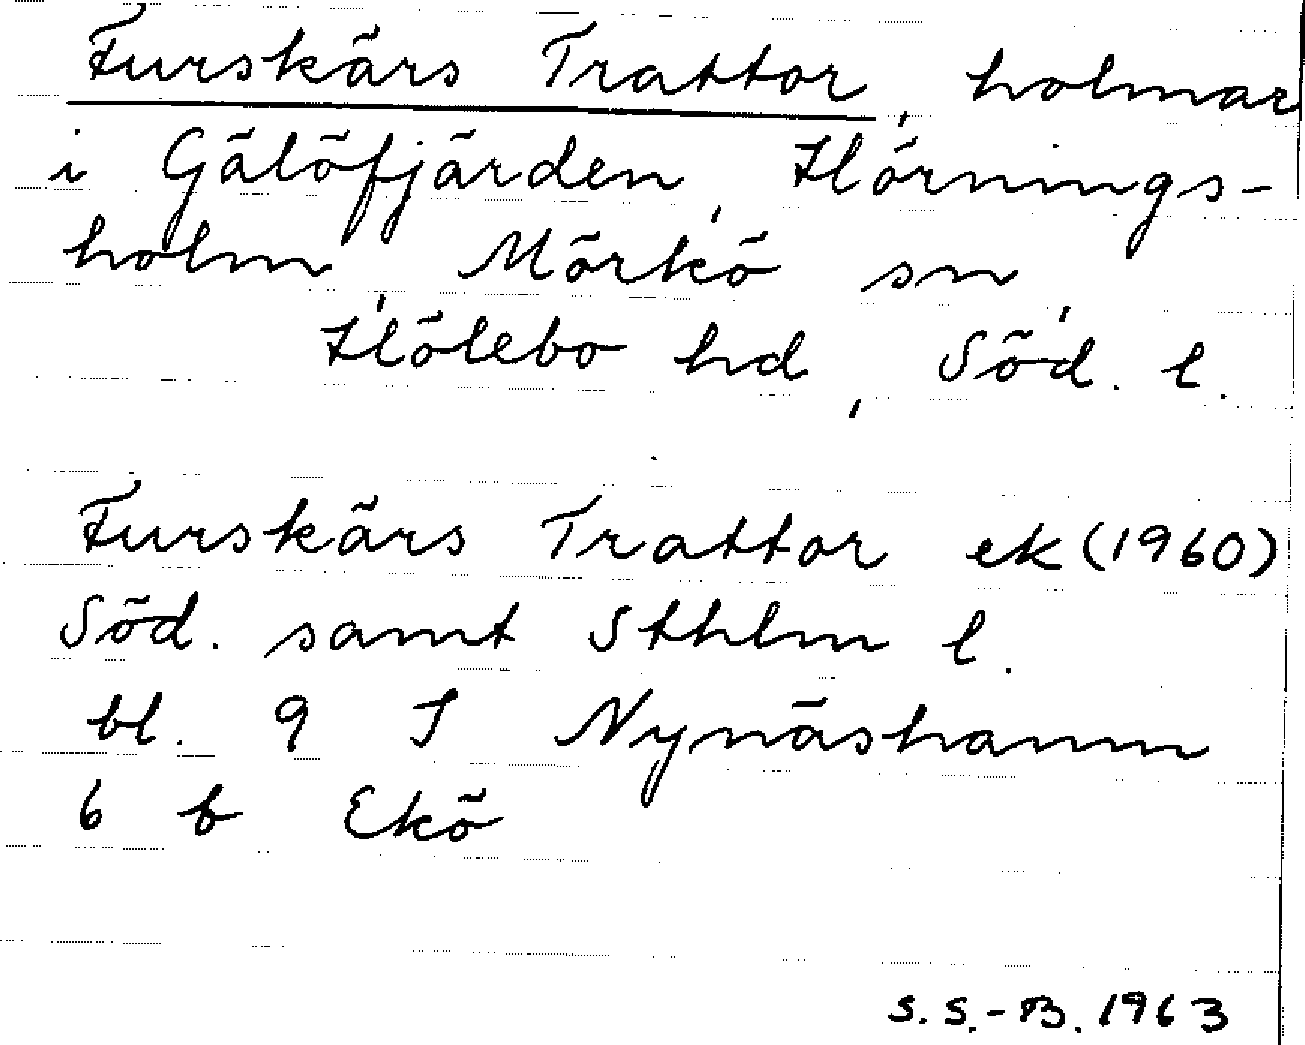 Furskärs Trattor, holmar
i Gälöfjärden, Hörnings-
holm, Mörkö sn,
Hölebo hd, Söd. l.
Furskärs Trattor ek (1960)
Söd. samt Sthlm l.
bl. 9 I Nynäshamn
6 b Ekö
S. S.-B. 1963